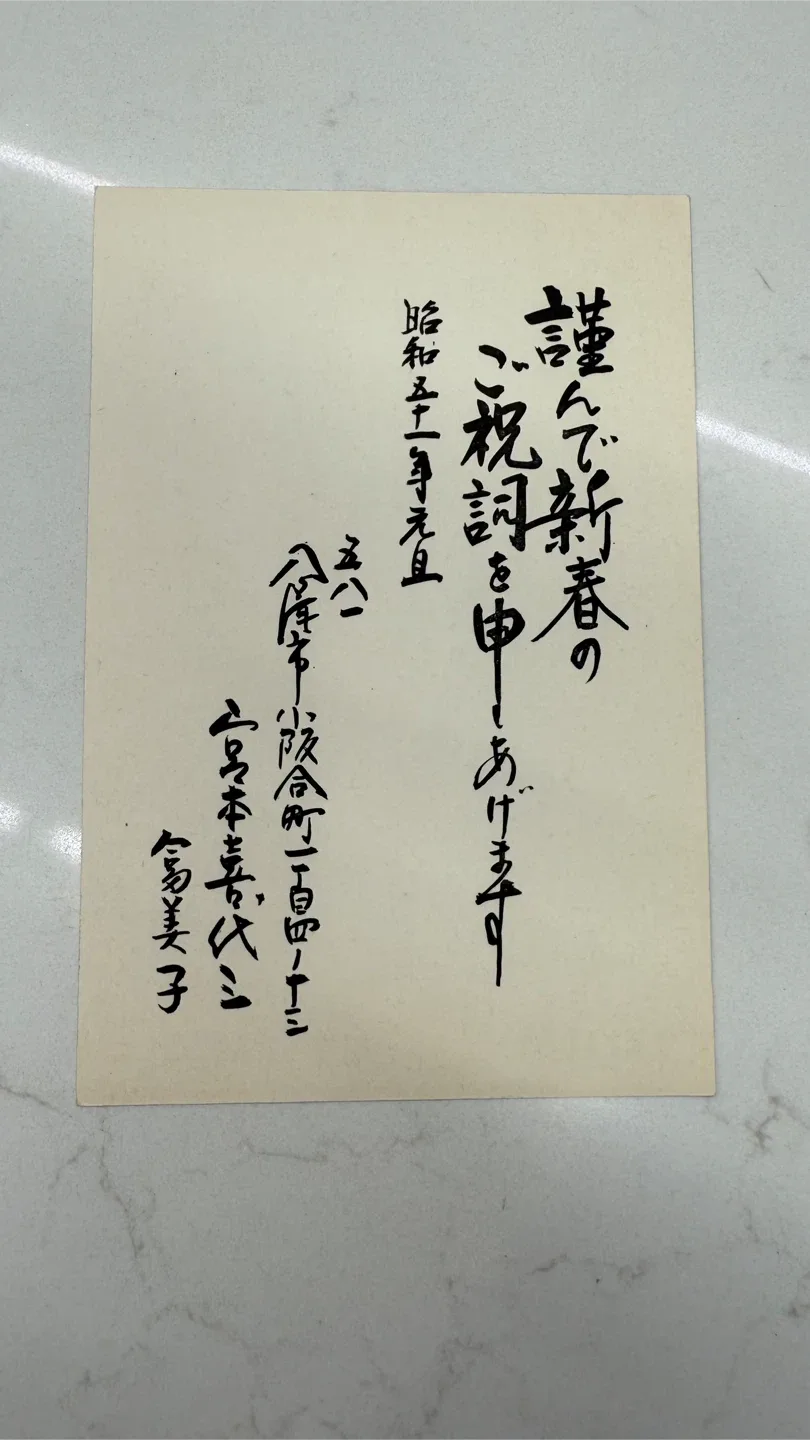 謹んで新春の
ご祝詞を申しあげます
昭和五十一年元旦
五八一
八尾市小阪合町一丁目四ノ十三
宮本喜代三
富美子